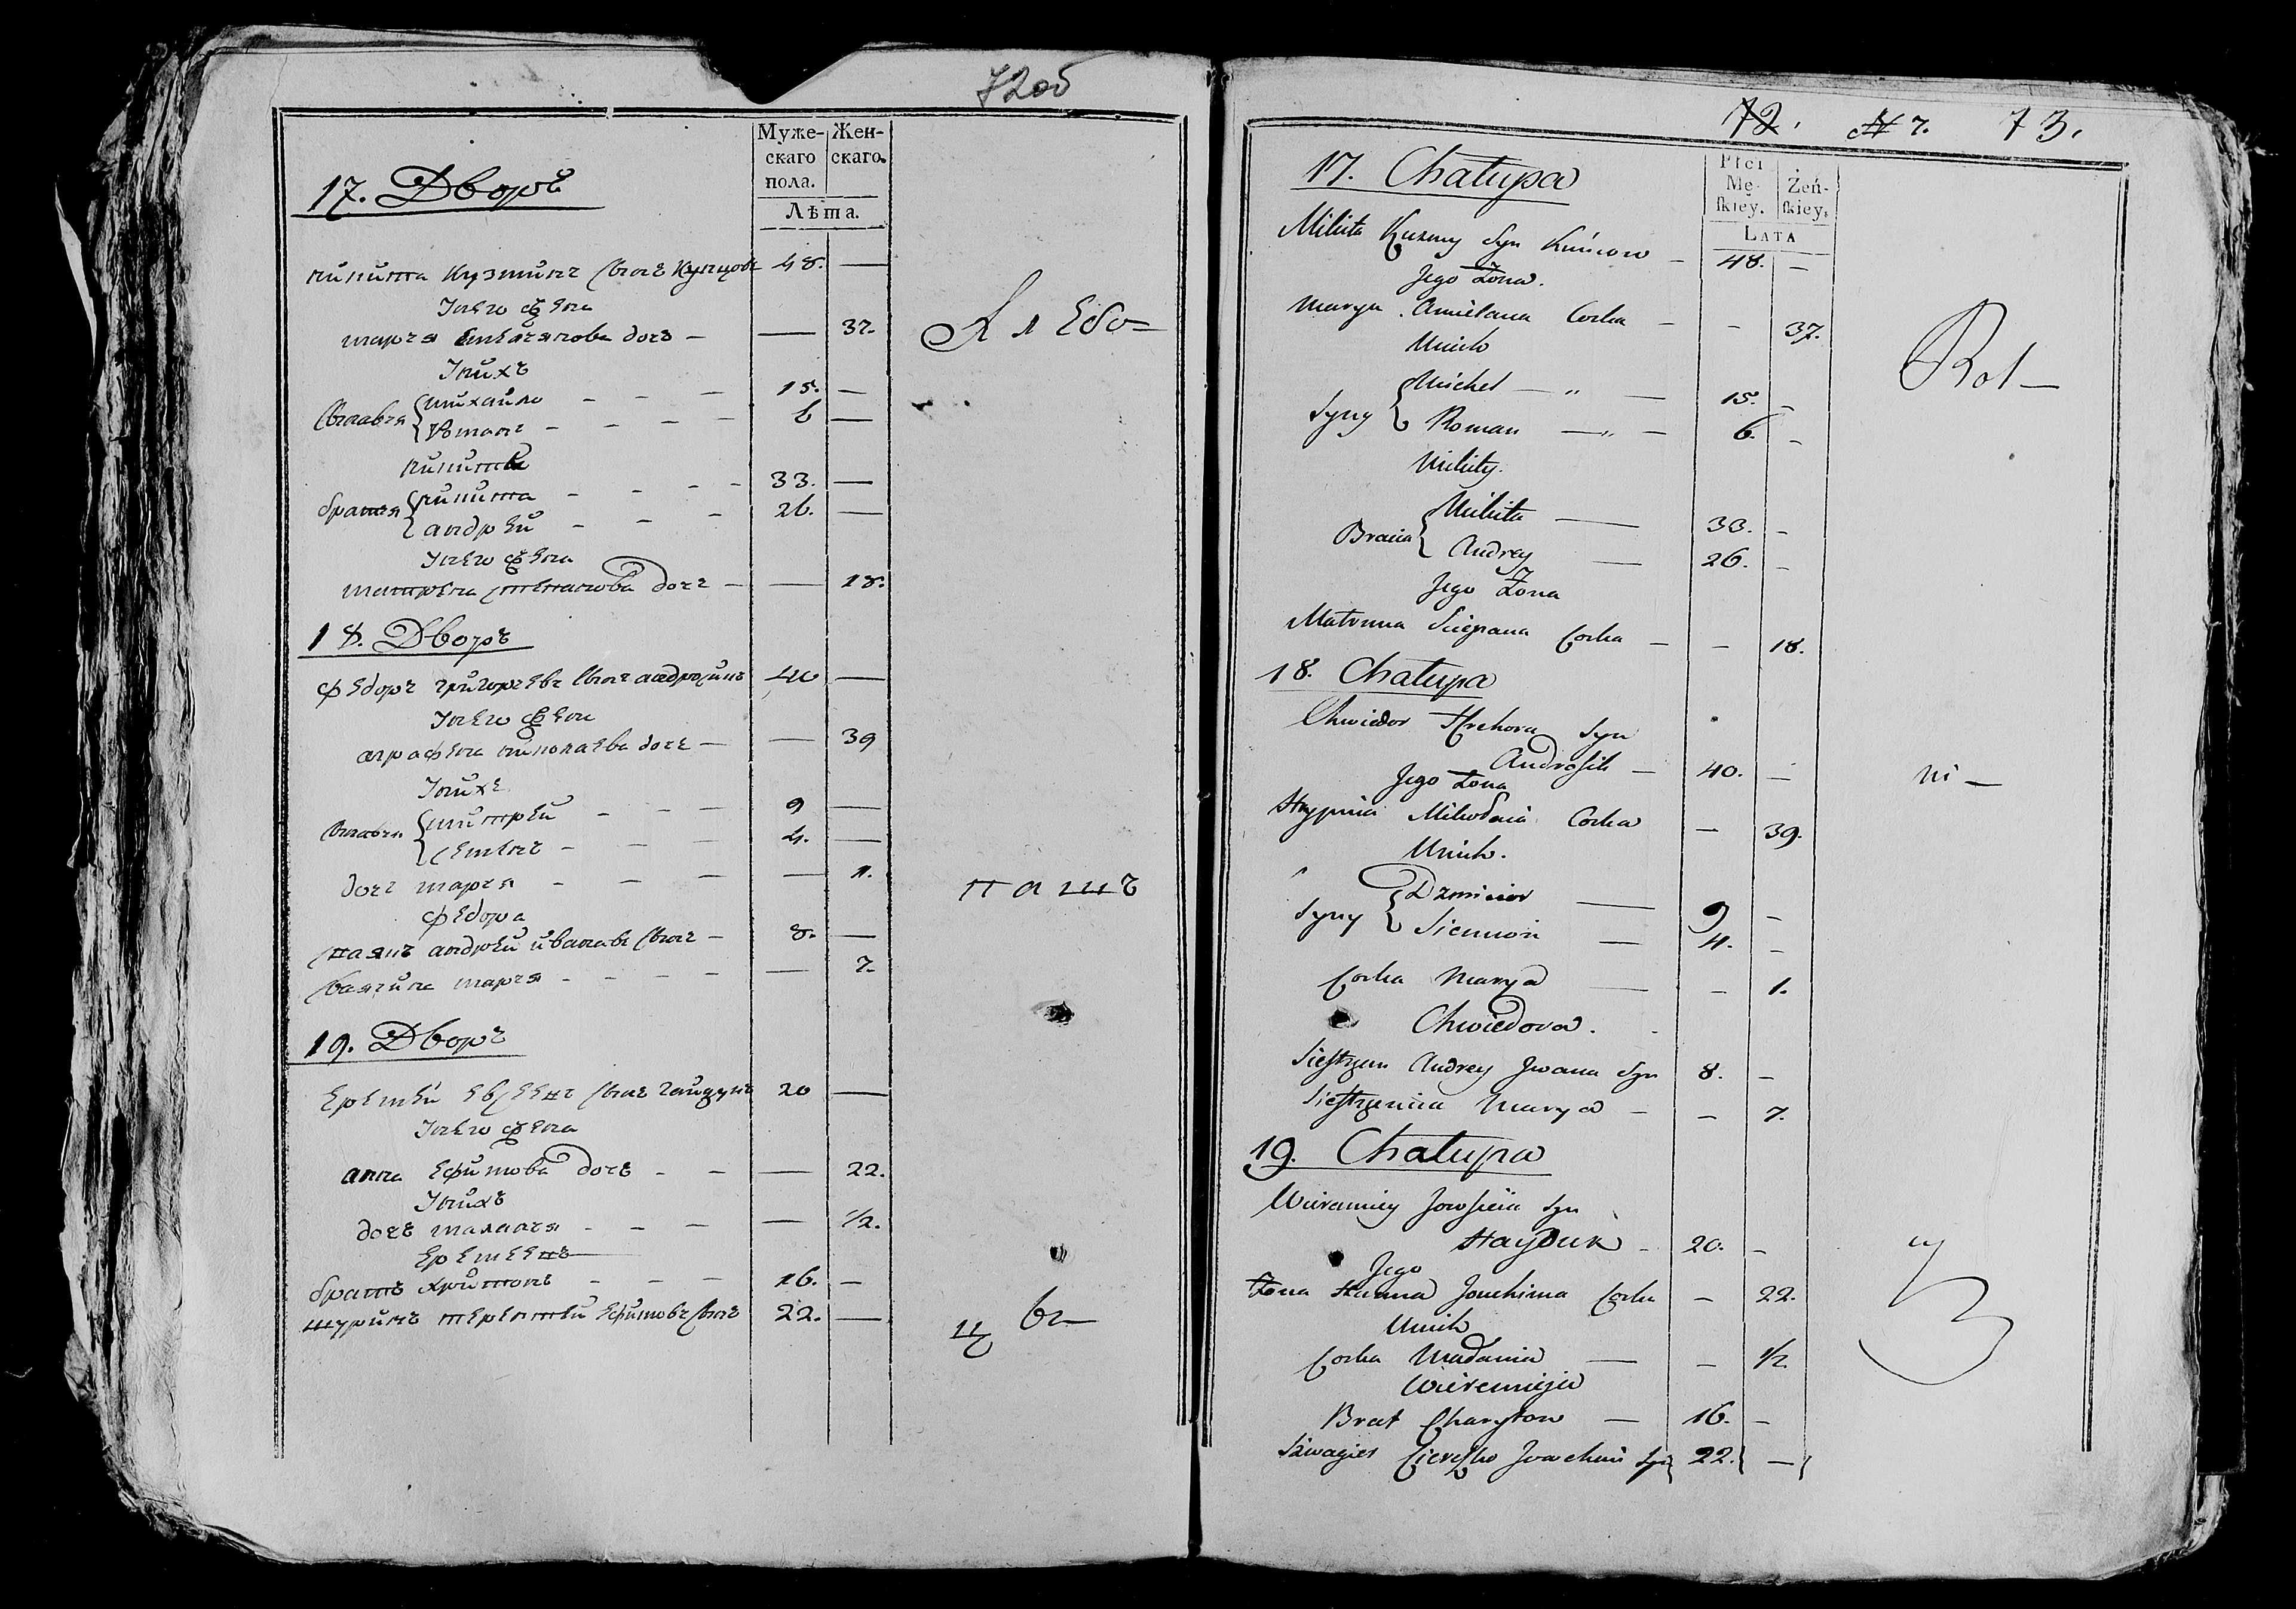 72об
Муже-
скаго
пола.
Жен-
скаго.
Лѣта.
17. Дворъ
никита кузминъ сынъ Купцовъ 48. —
Унего жена
марья емельянова дочь — — 37.
Унихъ
сыновья { михайло - - - 15. —
романъ - - - - 6 —
никиты
братья { никита - - - - 33. —
андрей - - - 26. —
Унего жена
матрѣна степанова дочь — — 18.
18. Дворъ
Федоръ григорьевъ сынъ андросикъ 40 —
Унего жена
аграфена николаева дочь — — 39
Унихъ
сыновья { митрей - - - 9 —
семенъ - - - 4. —
дочь марья - - - — 1.
Федора
андрей ивановъ сынъ — 8. —
марья - - - - — 7.
19. Дворъ
еремей евсеевъ сынъ гайдукъ 20 —
Унего жена
анна ефимова дочь - - — 22.
Унихъ
дочь маланья - - - — 1/2.
еремеевъ
братъ харитонъ - - - 16. —
шуринъ терентей ефимовъ сынъ 22. —
Хлебо=
пашъ
цъ
72. № 7. 73.
Płci
Mę-
skiey.
Żeń-
skiey.
LATA
17. Chałupa
Mikita Kuzmy Syn Kuńcow — 48. —
Jego Żona.
Marya Amielana Corka — — 37.
Unich
Syny { Michel — „ — 15. —
Roman — „ — 6. —
Mikity.
Bracia { Mikita — 33. —
Andrey — 26. —
Jego Żona
Matruna Sciepana Corka — — 18.
18. Chałupa
Chwiedor Hrehora Syn
Androsik — 40. —
Jego Żona
Hrypina Mikołaia Corka — 39.
Unich.
Syny { Dzmicier — 9 —
Siemion — 4. —
Corka Marya — — 1.
Chwiedora.
Siestrzen Andrey Jwana Syn 8. —
Siestrzenica Marya — — 7.
19. Chałupa
Wieramiey Jowsieia Syn
Hayduk — 20. —
Jego
Żona Hanna Jouchima Corka — 22.
Unich
Corka Małania — — 1/2.
Wieremieja
Brat Charyton — 16. —
Szwagier Ciereszko Jowchim Syn 22. —
Rol—
ni —
cy